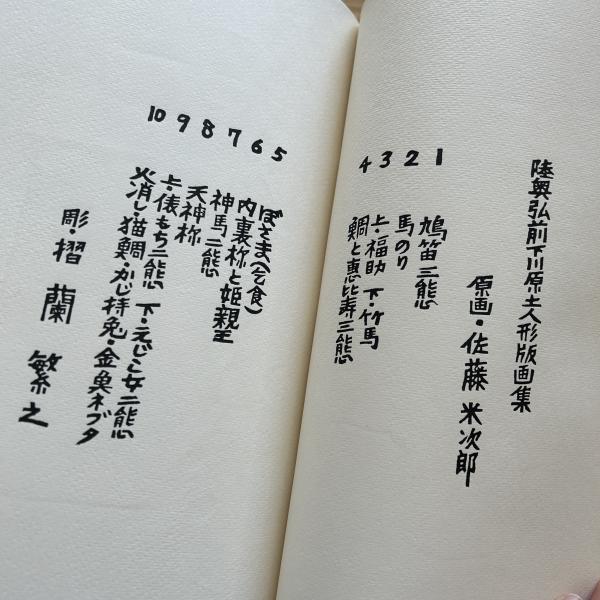 陸奥弘前下川原土人形版画集
原画・佐藤 米次郎
1 鳩笛三態
2 馬のり
3 上・福助 下・竹馬
4 鯛と恵比寿三態
5 ぼさま(乞食)
6 内裏祢と姫親王
7 神馬二態
8 天神祢
9 上・俵もち二態 下・えじこ女二態
10 火消し・猫鯛・かじ持兎・金魚ネブタ
彫・摺 蘭 繁之